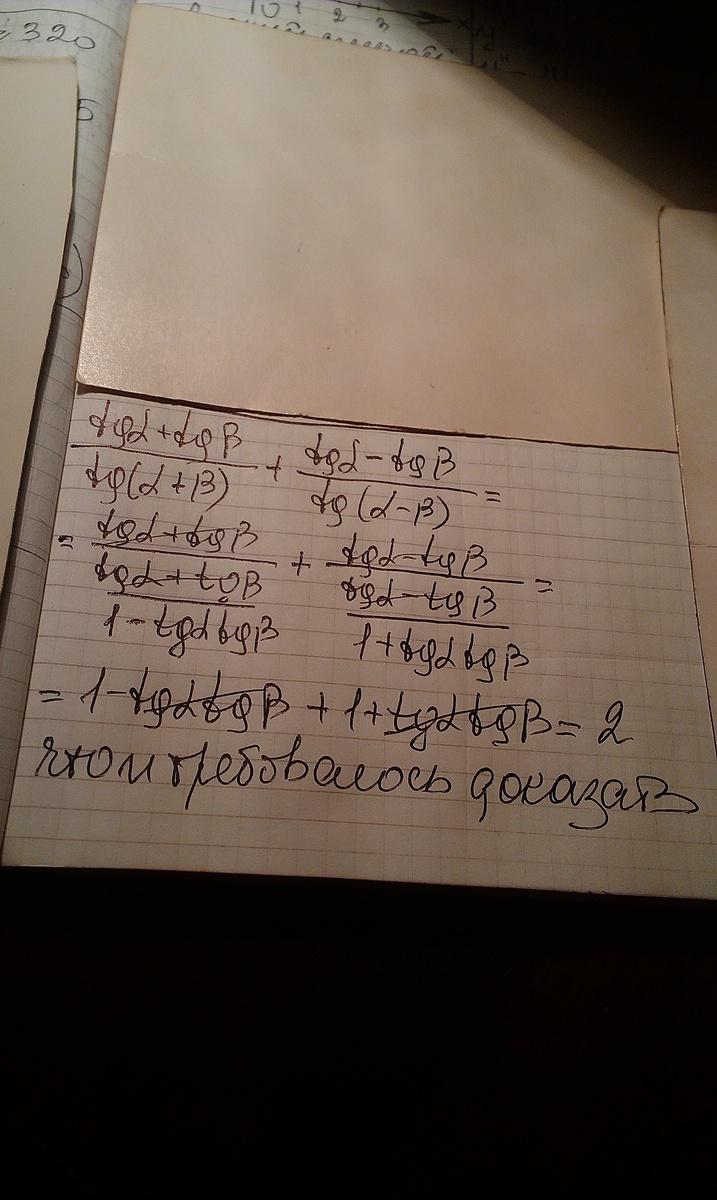 320
5
10 1 2 3 x
tgα+tgβ / tg(α+β) + tgα-tgβ / tg(α-β) =
= tgα+tgβ / (tgα+tgβ / 1-tgαtgβ) + tgα-tgβ / (tgα-tgβ / 1+tgαtgβ) =
= 1-tgαtgβ + 1+tgαtgβ = 2
что и требовалось доказать